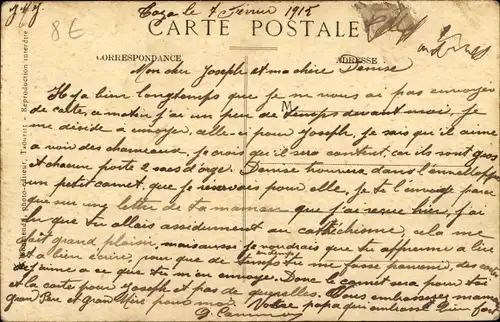 J.M.J.
8€
Taza le 7 Février 1915
CARTE POSTALE
CORRESPONDANCE
ADRESSE
Mon cher Joseph et ma chère Denise
Il y a bien longtemps que je ne vous ai pas envoyer
de carte, ce matin j'ai un peu de temps devant moi, je
me décide à envoyer celle-ci pour Joseph, je sais qu'il aime
a voir des chameaux je crois qu'il sera content, car ils sont gros
et chacun porte 2 sacs d'orge. Denise trouvera dans l'enveloppe
un petit carnet, que je réservais pour elle, je te l'envoie parce
que sur une lettre de ta maman que j'ai reçue hier, j'ai
lu que tu allais assidument au cathéchisme, cela me
fait grand plaisir, mais aussi je voudrais que tu apprenne a lire
et a bien écrire, pour que de temps en temps tu me fasse parvenir, des
a ce que tu m'en envoye. Donc le carnet sera pour toi
et la carte pour Joseph et pas de Vous embrasserez maman
grand Père et grand Mère pour moi. Votre papa qui embrasse bien fort
photo-éditeur, Taourirt - Reproduction interdite